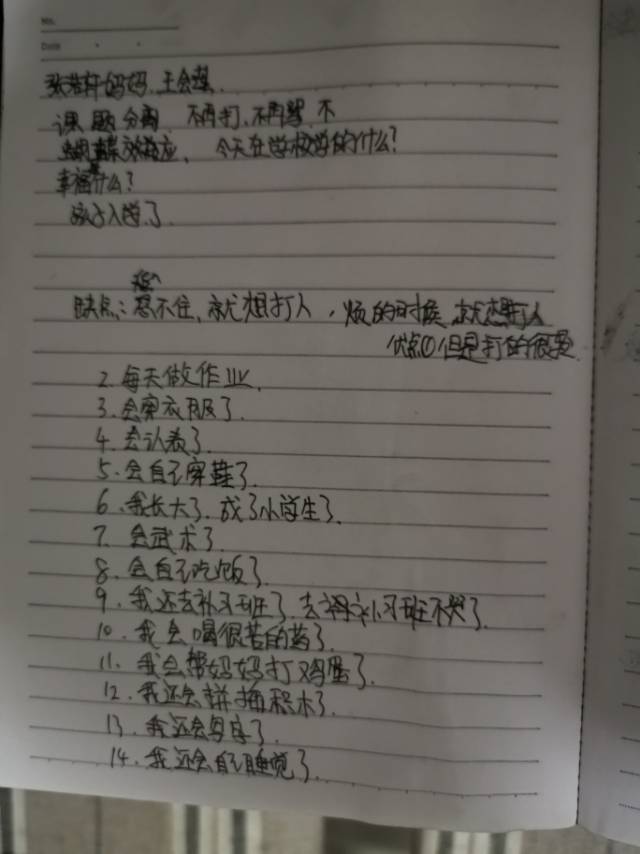 No.
Date
张若轩妈妈 王会
课题分离 不再打、不再骂 不
效应、今天在学校学的什么?
幸福是什么?
孩子入学了
忍
缺点:忍不住,就想打人,烦的时候 就想打人
优点① 但是打的很轻
2. 每天做作业.
3. 会穿衣服了.
4. 会认表了.
5. 会自己穿鞋了.
6. 我长大了. 成了小学生了.
7. 会武术了.
8. 会自己吃饭了.
9. 我还去补习班了. 去补习班不哭了.
10. 我会喝很苦的药了.
11. 我会帮妈妈打鸡蛋了.
12. 我还会拼插积木了.
13. 我还会写字了.
14. 我还会自己睡觉了.